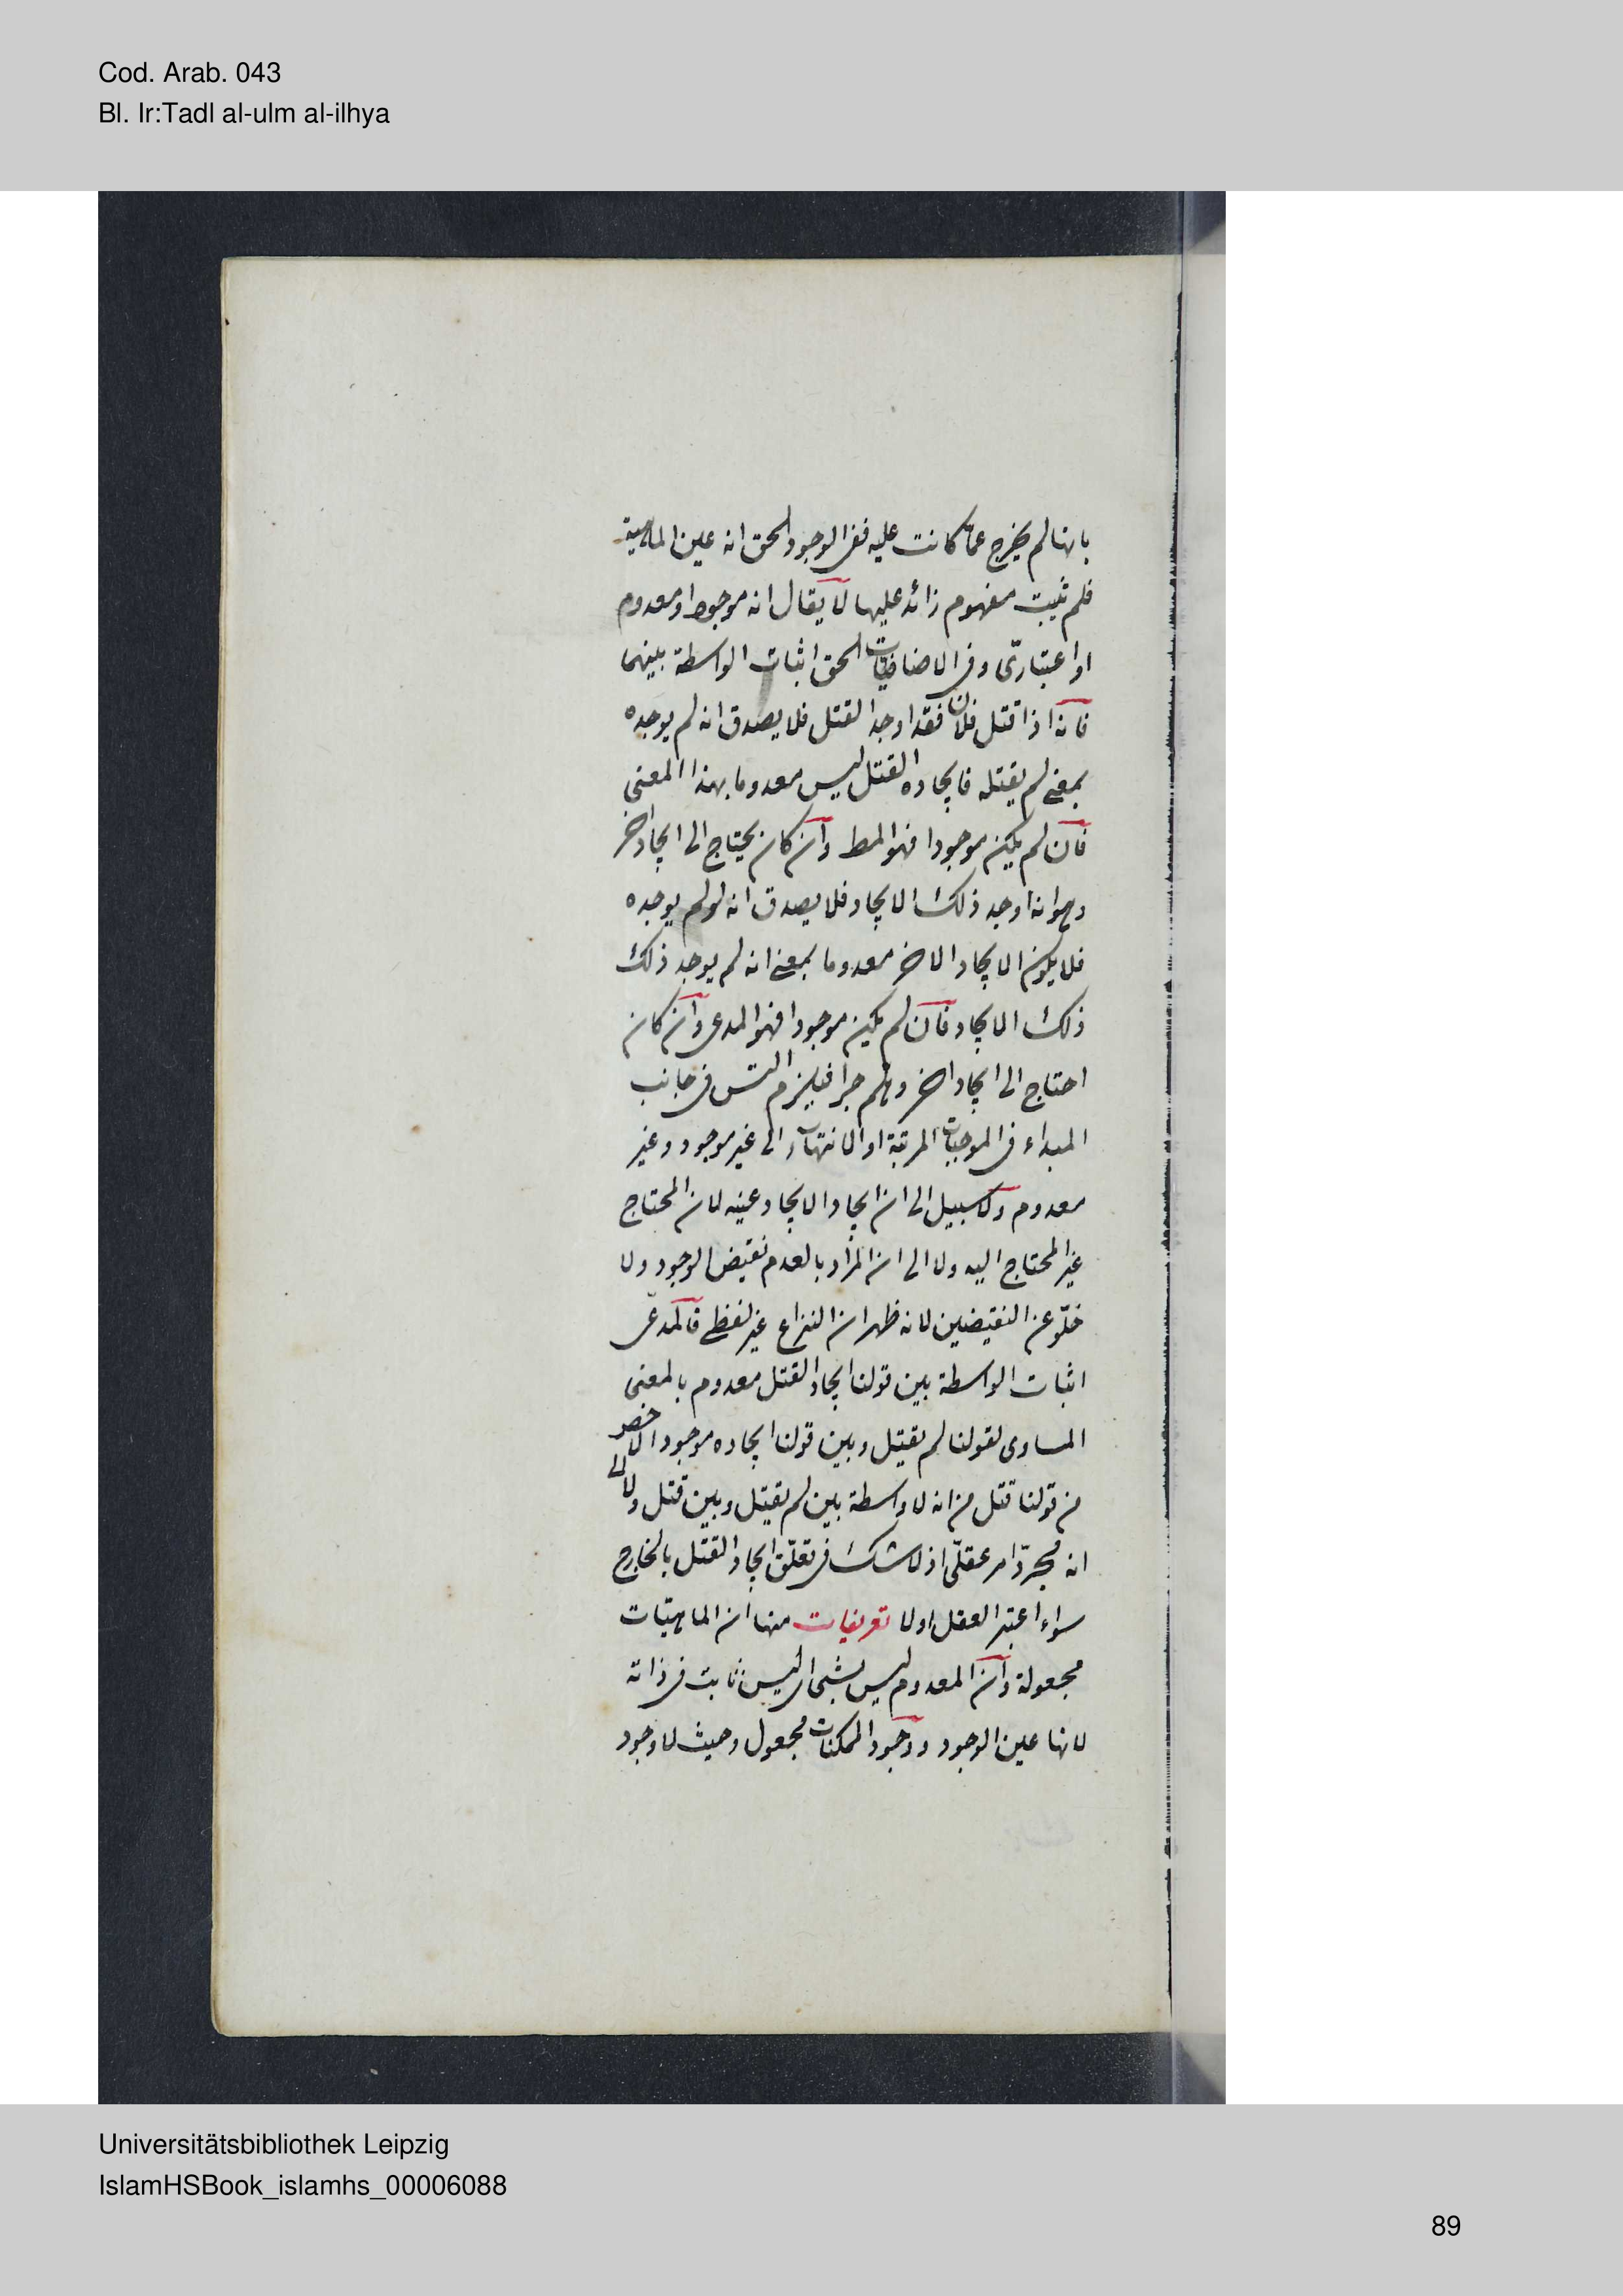 Cod. Arab. 043
Bl. Ir:Tadl al-ulm al-ilhya
بانها لم يخرج عمّا كانت عليه ففى الوجود الحق انه عين الماهية
فلم تثبت مفهوم زائد عليها لا يقال انه موجود او معدوم
او اعتبارىّ وفى الاضافيّات الحق اثبات الواسطة بينهما
فانه اذا قتل فلان فقد اوجد القتل فلا يصدق انه لم يوجده
بمعنى لم يقتله فايجاده القتل ليس معدوما بهذا المعنى
فان لم يكن موجودا فهو المط وان كان يحتاج الى ايجاد اخر
وهو انه اوجد ذلك الايجاد فلا يصدق انه لو لم يوجده
فلا يكون الايجاد الاخر معدوما بمعنى انه لم يوجد ذلك
ذلك الايجاد فان لم يكن موجودا فهو المدعى وان كان
احتاج الى ايجاد اخر وهلم جرا فيلزم التس فى جانب
المبداء فى الموجبات المرتبة او الانتهاء الى غير موجود وغير
معدوم ولا سبيل الى ان ايجاد الايجاد عينه لان المحتاج
غير المحتاج اليه ولا الى ان المراد بالعدم نقيض الوجود ولا
خلوّ عن النقيضين لانه ظهر ان النزاع غير لفظى فالمدعى
اثبات الواسطة بين قولنا ايجاد القتل معدوم بالمعنى
المساوى لقولنا لم يقتل وبين قولنا ايجاده موجود الاخصر
من قولنا قتل من انه لا واسطة بين لم يقتل وبين قتل ولا الى
انه مجرّد امر عقلّى اذ لا شك فى تعلّق ايجاد القتل بالخارج
سواء اعتبر العقل او لا تعريفات منها ان الماهيّات
مجعولة وان المعدوم ليس بشئ اى ليس ثابت فى ذاته
لانها عين الوجود ووجود الممكنات مجعول وحيث لا وجود
Universitätsbibliothek Leipzig
IslamHSBook_islamhs_00006088
89